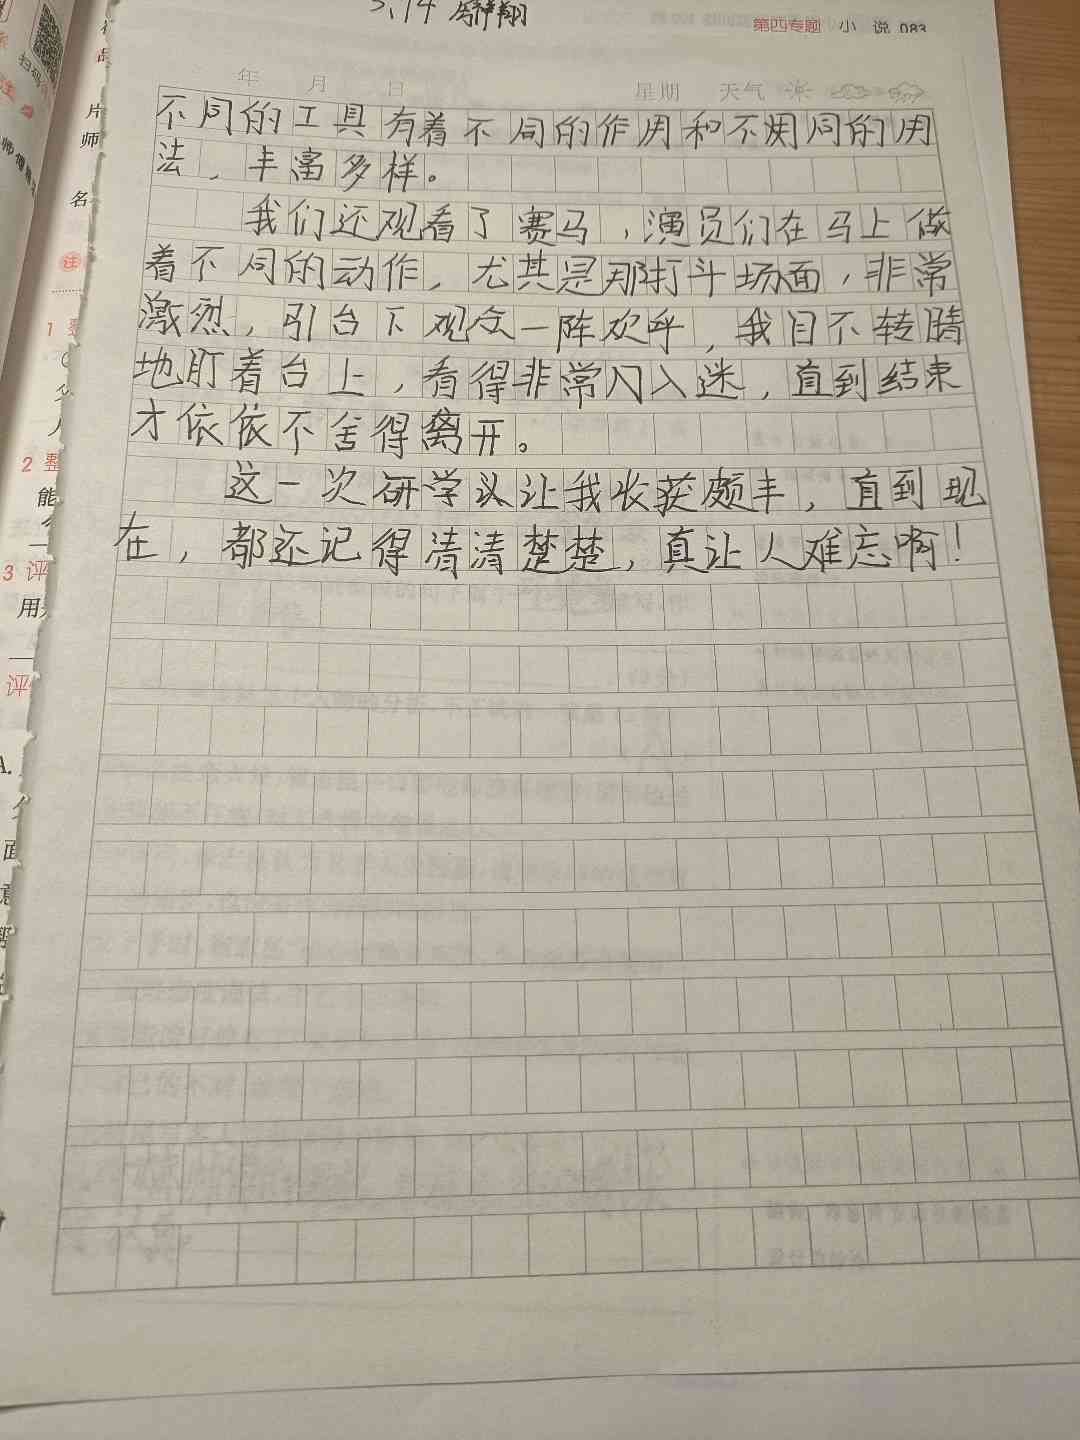 3.14
第四专题 小 说 083
年 月 日 星期 天气
不同的工具有着不同的作用和不同的用
法，丰富多样。
我们还观看了赛马，演员们在马上做
着不同的动作，尤其是那打斗场面，非常
激烈，引台下观众一阵欢呼，我目不转睛
地盯着台上，看得非常入迷，直到结束
才依依不舍得离开。
这一次研学让我收获颇丰，直到现
在，都还记得清清楚楚，真让人难忘啊！
扫码
注
片
师
名
注
1 整
2 整
能
3 评
用
评
A.
面